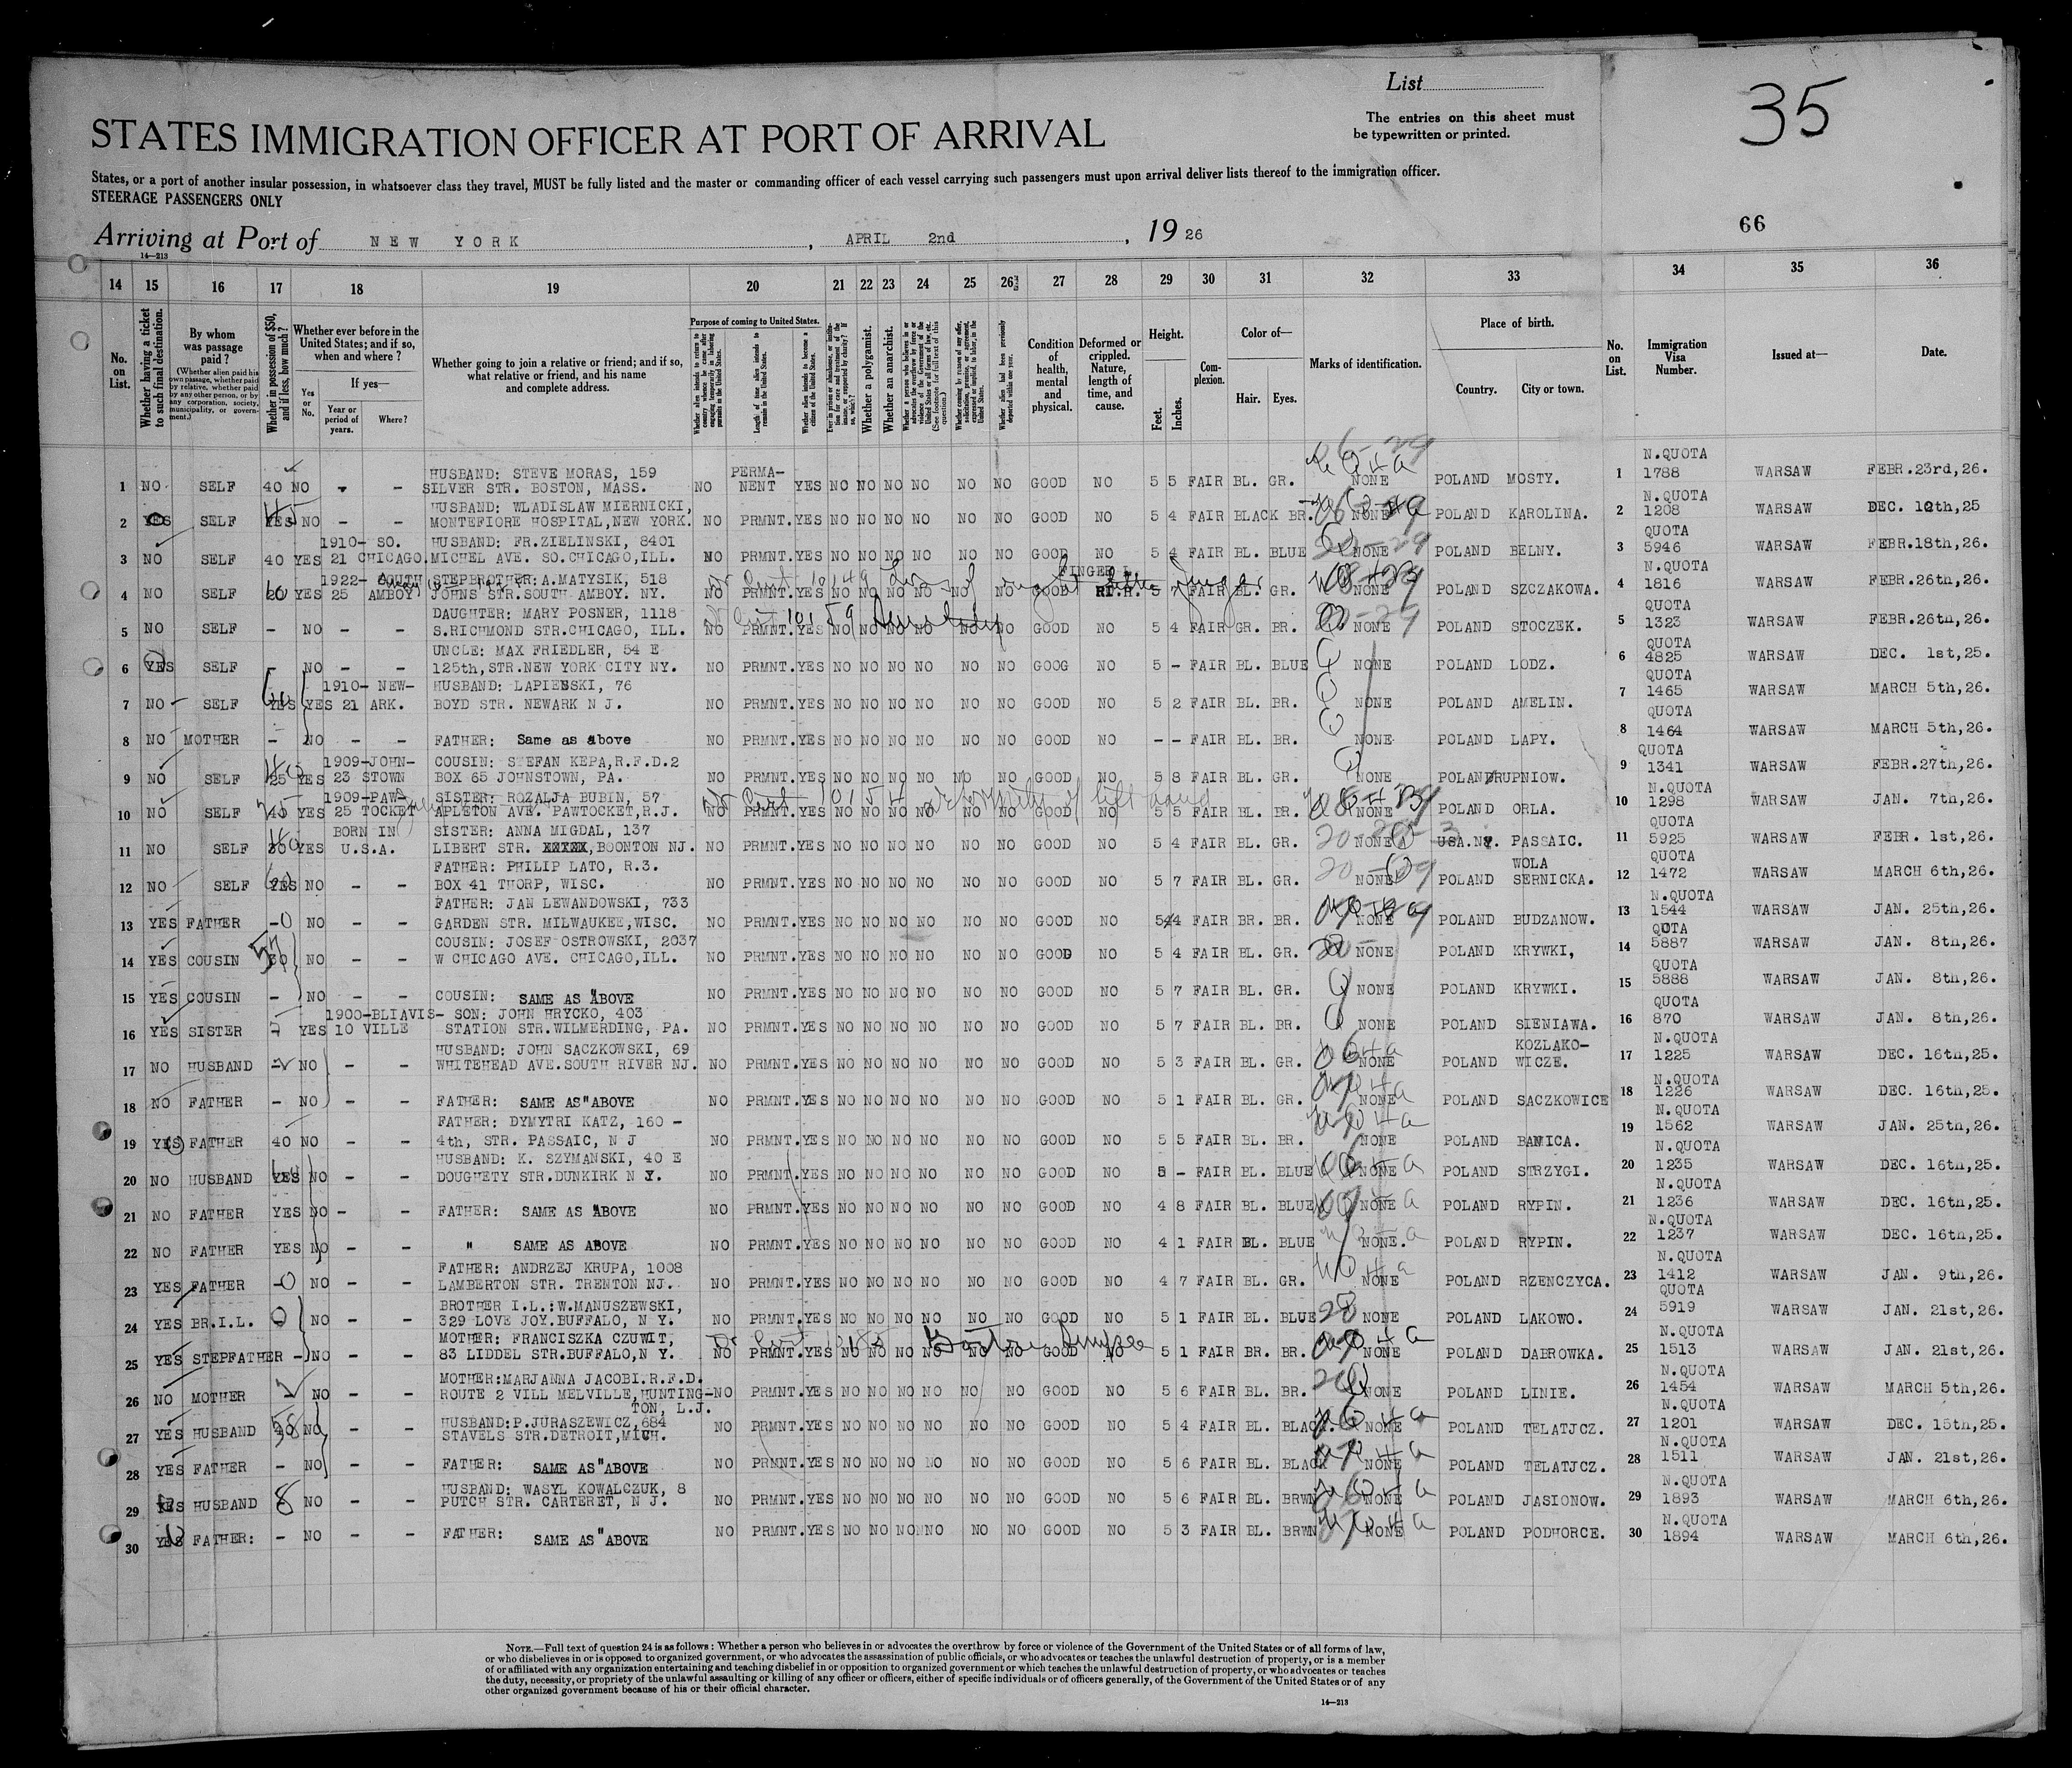 List
35
The entries on this sheet must
be typewritten or printed.
STATES IMMIGRATION OFFICER AT PORT OF ARRIVAL
States, or a port of another insular possession, in whatsoever class they travel, MUST be fully listed and the master or commanding officer of each vessel carrying such passengers must upon arrival deliver lists thereof to the immigration officer.
STEERAGE PASSENGERS ONLY
66
Arriving at Port of NEW YORK, APRIL 2nd, 1926
14—213
14 15 16 17 18 19 20 21 22 23 24 25 26 27 28 29 30 31 32 33 34 35 36
No. on List.
Whether having a ticket to such final destination.
By whom was passage paid?
(Whether alien paid his own passage, whether paid by relative, whether paid by any other person, or by any corporation, society, municipality, or government.)
Whether in possession of $50, and if less, how much?
Whether ever before in the United States; and if so, when and where?
Yes or No.
If yes—
Year or period of years.
Where?
Whether going to join a relative or friend; and if so, what relative or friend, and his name and complete address.
Purpose of coming to United States.
Length of time alien intends to remain in the United States.
Whether alien intends to become a citizen of the United States.
Whether a polygamist.
Whether an anarchist.
Condition of health, mental and physical.
Deformed or crippled. Nature, length of time, and cause.
Height.
Feet.
Inches.
Complexion.
Color of—
Hair.
Eyes.
Marks of identification.
Place of birth.
Country.
City or town.
No. on List.
Immigration Visa Number.
Issued at—
Date.
HUSBAND: STEVE MORAS, 159 PERMA- N.QUOTA
1 NO SELF 40 NO - - SILVER STR. BOSTON, MASS. NO NENT YES NO NO NO NO NO NO GOOD NO 5 5 FAIR BL. GR. NONE POLAND MOSTY. 1 1788 WARSAW FEBR.23rd,26.
HUSBAND: WLADISLAW MIERNICKI, N.QUOTA
2 YES SELF YES NO - - MONTEFIORE HOSPITAL,NEW YORK. NO PRMNT. YES NO NO NO NO NO NO GOOD NO 5 4 FAIR BLACK BR. NONE POLAND KAROLINA. 2 1208 WARSAW DEC. 12th,25
1910- SO. HUSBAND: FR.ZIELINSKI, 8401 QUOTA
3 NO SELF 40 YES 21 CHICAGO. MICHEL AVE. SO.CHICAGO,ILL. NO PRMNT. YES NO NO NO NO NO NO GOOD NO 5 4 FAIR BL. BLUE NONE POLAND BELNY. 3 5946 WARSAW FEBR.18th,26.
1922- SOUTH STEPBROTHER:A.MATYSIK, 518 FINGER L. N.QUOTA
4 NO SELF YES 25 AMBOY JOHNS STR.SOUTH AMBOY. NY. NO PRMNT. YES NO NO NO NO NO NO GOOD 5 7 FAIR BL. GR. NONE POLAND SZCZAKOWA. 4 1816 WARSAW FEBR.26th,26.
DAUGHTER: MARY POSNER, 1118 QUOTA
5 NO SELF - NO - - S.RICHMOND STR.CHICAGO, ILL. NO PRMNT. YES NO NO NO NO NO NO GOOD NO 5 4 FAIR GR. BR. NONE POLAND STOCZEK. 5 1323 WARSAW FEBR.26th,26.
UNCLE: MAX FRIEDLER, 54 E QUOTA
6 YES SELF - NO - - 125th,STR.NEW YORK CITY NY. NO PRMNT. YES NO NO NO NO NO NO GOOG NO 5 - FAIR BL. BLUE NONE POLAND LODZ. 6 4825 WARSAW DEC. 1st,25.
1910- NEW- HUSBAND: LAPIENSKI, 76 QUOTA
7 NO SELF YES YES 21 ARK. BOYD STR. NEWARK N J. NO PRMNT. YES NO NO NO NO NO NO GOOD NO 5 2 FAIR BL. BR. NONE POLAND AMELIN. 7 1465 WARSAW MARCH 5th,26.
QUOTA
8 NO MOTHER - NO - - FATHER: Same as above NO PRMNT. YES NO NO NO NO NO NO GOOD NO - - FAIR BL. BR. NONE POLAND LAPY. 8 1464 WARSAW MARCH 5th,26.
1909-JOHN- COUSIN: STEFAN KEPA,R.F.D.2 QUOTA
9 NO SELF 25 YES 23 STOWN BOX 65 JOHNSTOWN, PA. NO PRMNT. YES NO NO NO NO NO NO GOOD NO 5 8 FAIR BL. GR. NONE POLAND RUPNIOW. 9 1341 WARSAW FEBR.27th,26.
1909-PAW- SISTER: ROZALJA BUBIN, 57 N.QUOTA
10 NO SELF 45 YES 25 TOCKET APLETON AVE. PAWTOCKET,R.J. NO PRMNT. YES NO NO NO NO NO NO GOOD NO 5 5 FAIR BL. BR. NONE POLAND ORLA. 10 1298 WARSAW JAN. 7th,26.
BORN IN SISTER: ANNA MIGDAL, 137 QUOTA
11 NO SELF YES U.S.A. LIBERT STR. XXXXX,BOONTON NJ. NO PRMNT. YES NO NO NO NO NO NO GOOD NO 5 4 FAIR BL. GR. NONE USA. PASSAIC. 11 5925 WARSAW FEBR. 1st,26.
FATHER: PHILIP LATO, R.3. WOLA QUOTA
12 NO SELF YES NO - - BOX 41 THORP, WISC. NO PRMNT. YES NO NO NO NO NO NO GOOD NO 5 7 FAIR BL. GR. NONE POLAND SERNICKA. 12 1472 WARSAW MARCH 6th,26.
FATHER: JAN LEWANDOWSKI, 733 N.QUOTA
13 YES FATHER -0 NO - - GARDEN STR. MILWAUKEE,WISC. NO PRMNT. YES NO NO NO NO NO NO GOOD NO 5 4 FAIR BR. BR. NONE POLAND BUDZANOW. 13 1544 WARSAW JAN. 25th,26.
COUSIN: JOSEF OSTROWSKI, 2037 QUOTA
14 YES COUSIN NO - - W CHICAGO AVE. CHICAGO,ILL. NO PRMNT. YES NO NO NO NO NO NO GOOD NO 5 4 FAIR BL. GR. NONE POLAND KRYWKI, 14 5887 WARSAW JAN. 8th,26.
QUOTA
15 YES COUSIN - NO - - COUSIN: SAME AS ABOVE NO PRMNT. YES NO NO NO NO NO NO GOOD NO 5 7 FAIR BL. GR. NONE POLAND KRYWKI. 15 5888 WARSAW JAN. 8th,26.
1900-BLIAVIS- SON: JOHN HRYCKO, 403 QUOTA
16 YES SISTER - YES 10 VILLE STATION STR.WILMERDING, PA. NO PRMNT. YES NO NO NO NO NO NO GOOD NO 5 7 FAIR BL. BR. NONE POLAND SIENIAWA. 16 870 WARSAW JAN. 8th,26.
HUSBAND: JOHN SACZKOWSKI, 69 KOZLAKO- N.QUOTA
17 NO HUSBAND - NO - - WHITEHEAD AVE.SOUTH RIVER NJ. NO PRMNT. YES NO NO NO NO NO NO GOOD NO 5 3 FAIR BL. GR. NONE POLAND WICZE. 17 1225 WARSAW DEC. 16th,25.
N.QUOTA
18 NO FATHER - NO - - FATHER: SAME AS"ABOVE NO PRMNT. YES NO NO NO NO NO NO GOOD NO 5 1 FAIR BL. GR. NONE POLAND SACZKOWICE 18 1226 WARSAW DEC. 16th,25.
FATHER: DYMYTRI KATZ, 160 - N.QUOTA
19 YES FATHER 40 NO - - 4th, STR. PASSAIC, N J NO PRMNT. YES NO NO NO NO NO NO GOOD NO 5 5 FAIR BL. BR. NONE POLAND BANICA. 19 1562 WARSAW JAN. 25th,26.
HUSBAND: K. SZYMANSKI, 40 E N.QUOTA
20 NO HUSBAND YES NO - - DOUGHETY STR.DUNKIRK N Y. NO PRMNT. YES NO NO NO NO NO NO GOOD NO 5 - FAIR BL. BLUE NONE POLAND STRZYGI. 20 1235 WARSAW DEC. 16th,25.
N.QUOTA
21 NO FATHER YES NO - - FATHER: SAME AS ABOVE NO PRMNT. YES NO NO NO NO NO NO GOOD NO 4 8 FAIR BL. BLUE NONE POLAND RYPIN. 21 1236 WARSAW DEC. 16th,25.
N.QUOTA
22 NO FATHER YES NO - - " SAME AS ABOVE NO PRMNT. YES NO NO NO NO NO NO GOOD NO 4 1 FAIR BL. BLUE NONE. POLAND RYPIN. 22 1237 WARSAW DEC. 16th,25.
FATHER: ANDRZEJ KRUPA, 1008 N.QUOTA
23 YES FATHER -0 NO - - LAMBERTON STR. TRENTON NJ. NO PRMNT. YES NO NO NO NO NO NO GOOD NO 4 7 FAIR BL. GR. NONE POLAND RZENCZYCA. 23 1412 WARSAW JAN. 9th,26.
BROTHER I.L.:W.MANUSZEWSKI, QUOTA
24 YES BR.I.L. 0 NO - - 329 LOVE JOY.BUFFALO, N Y. NO PRMNT. YES NO NO NO NO NO NO GOOD NO 5 1 FAIR BL. BLUE NONE POLAND LAKOWO. 24 5919 WARSAW JAN. 21st,26.
MOTHER: FRANCISZKA CZUWIT, N.QUOTA
25 YES STEPFATHER - NO - - 83 LIDDEL STR.BUFFALO,N Y. NO PRMNT. YES NO NO NO NO NO NO GOOD NO 5 1 FAIR BR. BR. NONE POLAND DABROWKA. 25 1513 WARSAW JAN. 21st,26.
MOTHER:MARJANNA JACOBI.R.F.D. N.QUOTA
26 NO MOTHER - NO - - ROUTE 2 VILL MELVILLE,HUNTING- NO PRMNT. YES NO NO NO NO NO NO GOOD NO 5 6 FAIR BL. BR. NONE POLAND LINIE. 26 1454 WARSAW MARCH 5th,26.
TON, L.J.
HUSBAND:P.JURASZEWICZ,684 N.QUOTA
27 YES HUSBAND NO - - STAVELS STR.DETROIT,MICH. NO PRMNT. YES NO NO NO NO NO NO GOOD NO 5 4 FAIR BL. BLACK. NONE POLAND TELATJCZ. 27 1201 WARSAW DEC. 15th,25.
N.QUOTA
28 YES FATHER - NO - - FATHER: SAME AS"ABOVE NO PRMNT. YES NO NO NO NO NO NO GOOD NO 5 6 FAIR BL. BLACK NONE POLAND TELATJCZ. 28 1511 WARSAW JAN. 21st,26.
HUSBAND: WASYL KOWALCZUK, 8 N.QUOTA
29 YES HUSBAND 8 NO - - PUTCH STR. CARTERET, N J. NO PRMNT. YES NO NO NO NO NO NO GOOD NO 5 6 FAIR BL. BRWN NONE POLAND JASIONOW. 29 1893 WARSAW MARCH 6th,26.
N.QUOTA
30 YES FATHER: - NO - - FATHER: SAME AS"ABOVE NO PRMNT. YES NO NO NO NO NO NO GOOD NO 5 3 FAIR BL. BRWN NONE POLAND PODHORCE. 30 1894 WARSAW MARCH 6th,26.
NOTE.—Full text of question 24 is as follows: Whether a person who believes in or advocates the overthrow by force or violence of the Government of the United States or of all forms of law,
or who disbelieves in or is opposed to organized government, or who advocates the assassination of public officials, or who advocates or teaches the unlawful destruction of property, or is a member
of or affiliated with any organization entertaining and teaching disbelief in or opposition to organized government or which teaches the unlawful destruction of property, or who advocates or teaches
the duty, necessity, or propriety of the unlawful assaulting or killing of any officer or officers, either of specific individuals or of officers generally, of the Government of the United States or of any
other organized government because of his or their official character.
14—213